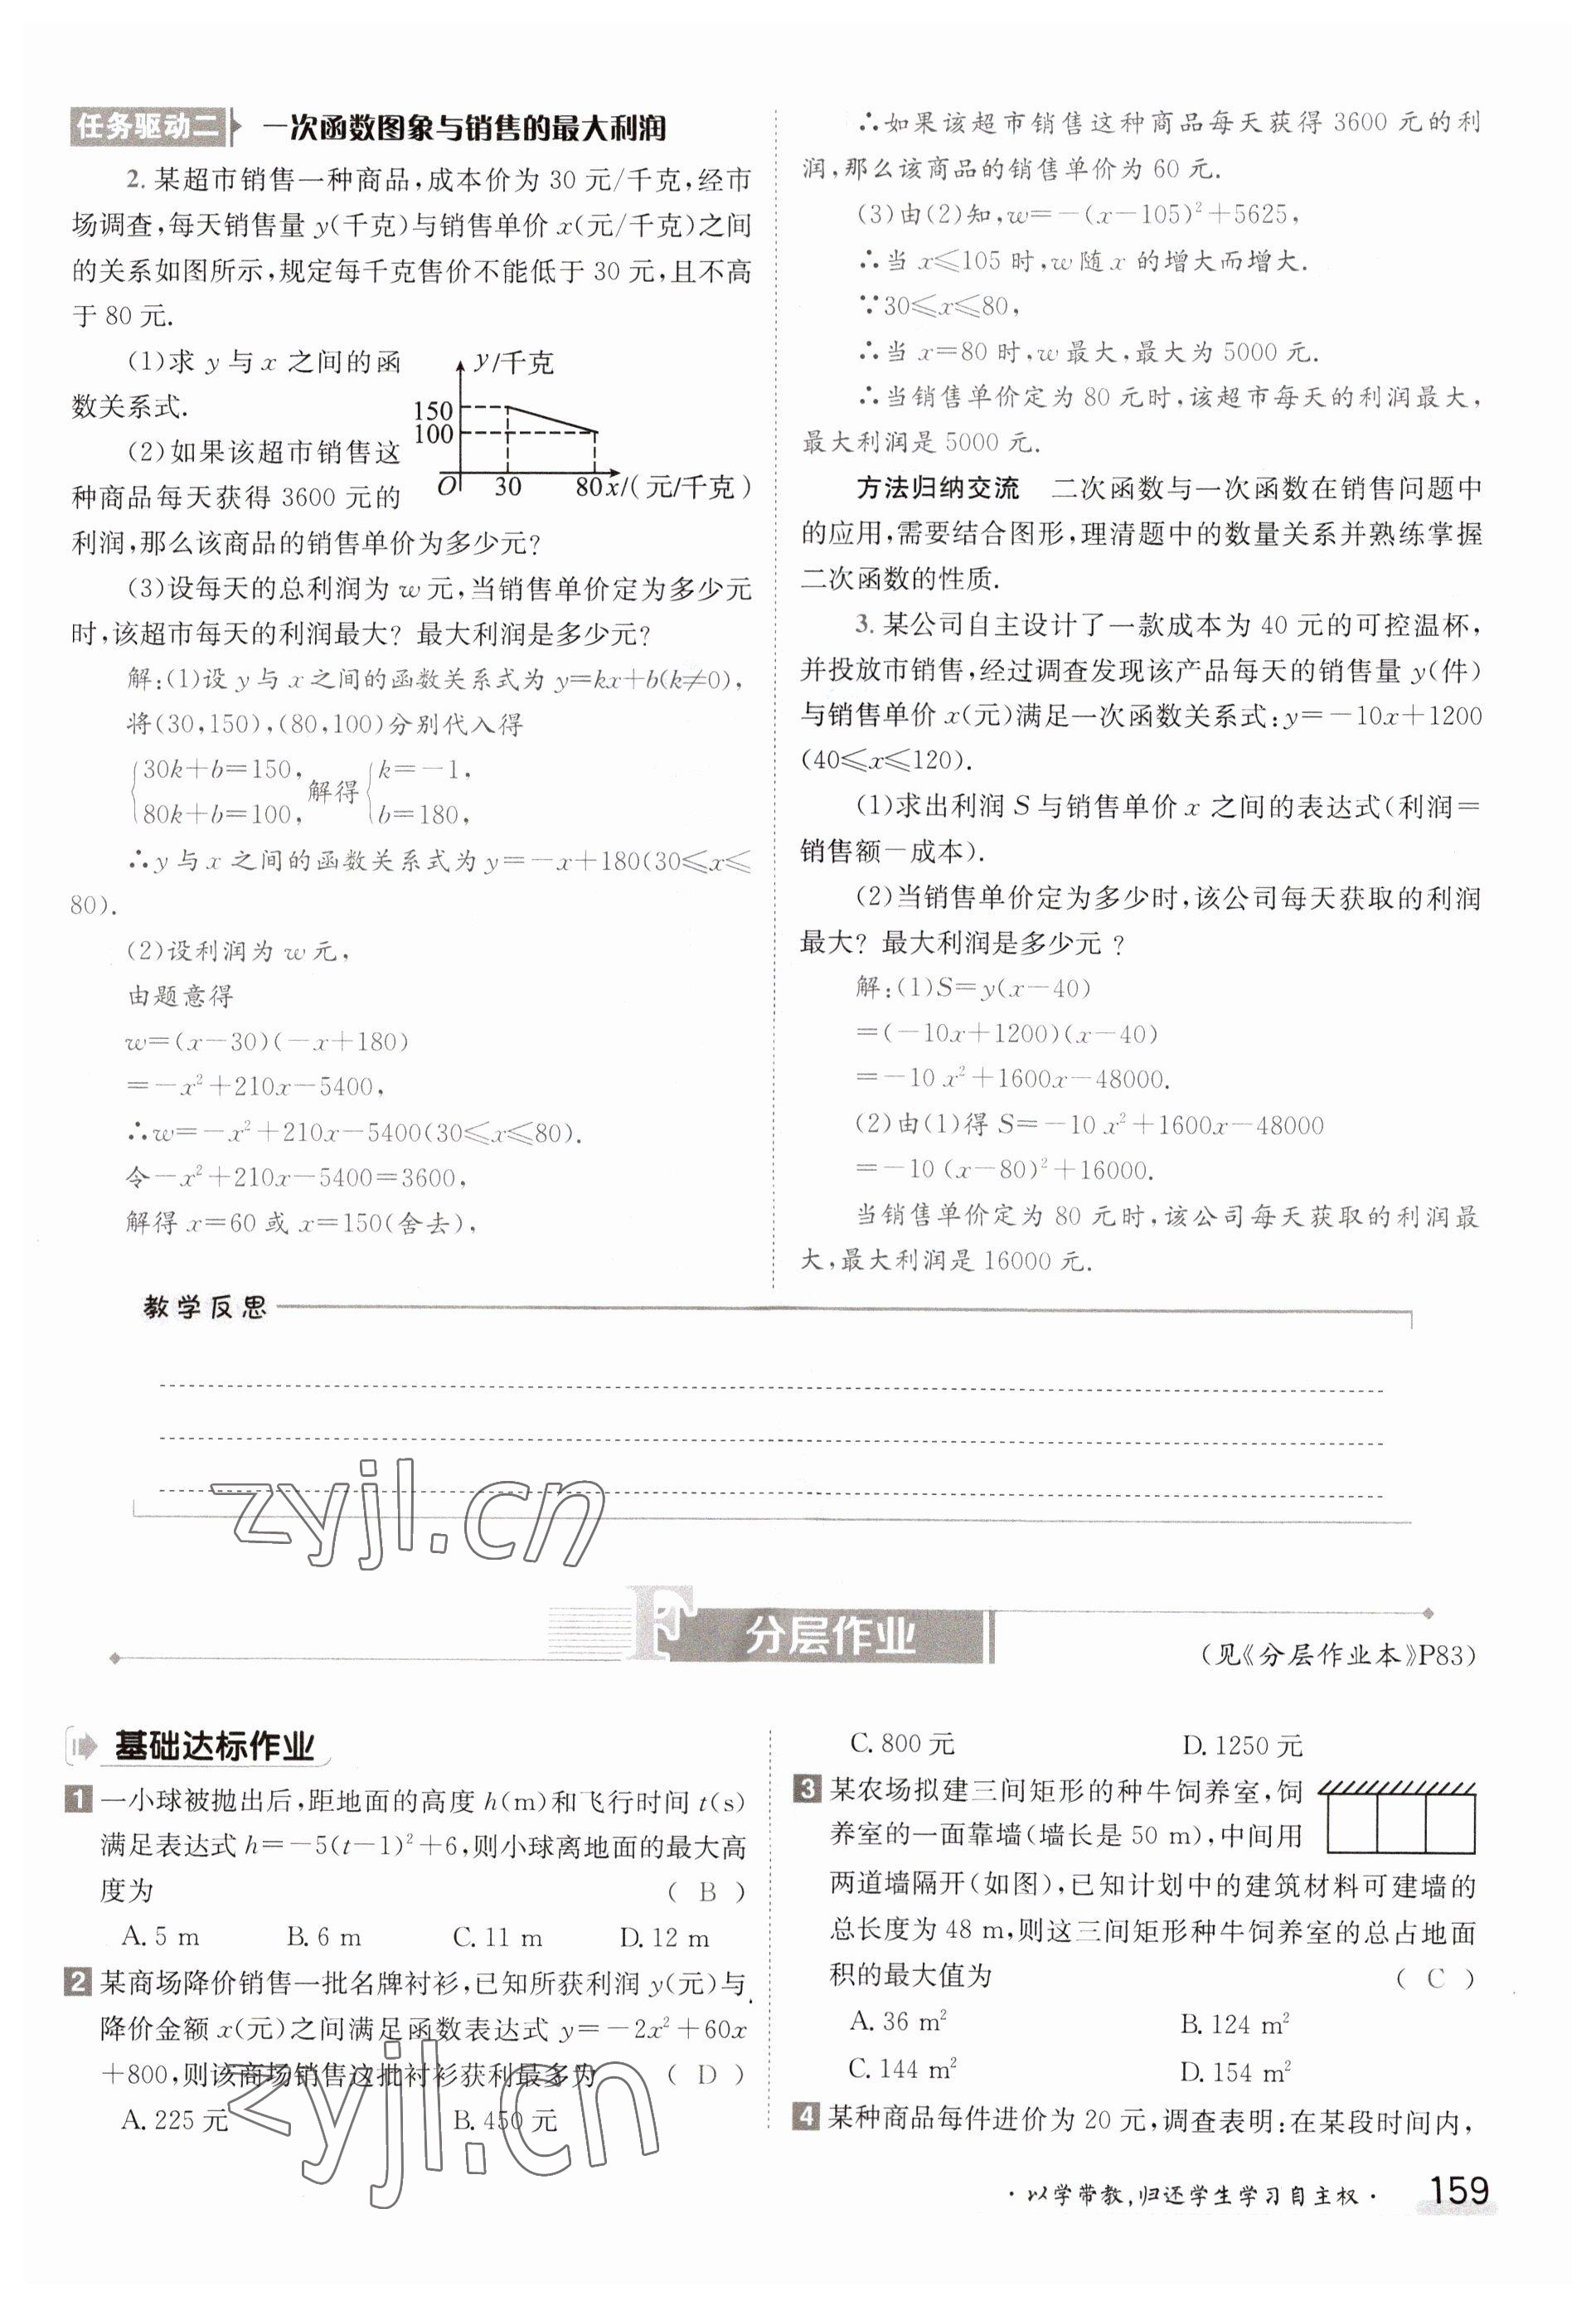 任务驱动二 一次函数图象与销售的最大利润
2. 某超市销售一种商品,成本价为 30 元/千克,经市
场调查,每天销售量 y(千克)与销售单价 x(元/千克)之间
的关系如图所示,规定每千克售价不能低于 30 元,且不高
于 80 元.
(1)求 y 与 x 之间的函
数关系式.
(2)如果该超市销售这
种商品每天获得 3600 元的
y/千克
150
100
O 30 80 x/(元/千克)
利润,那么该商品的销售单价为多少元?
(3)设每天的总利润为 w 元,当销售单价定为多少元
时,该超市每天的利润最大? 最大利润是多少元?
解:(1)设 y 与 x 之间的函数关系式为 y=kx+b(k≠0),
将(30,150),(80,100)分别代入得
{30k+b=150, 80k+b=100, 解得 {k=-1, b=180,
∴y 与 x 之间的函数关系式为 y=-x+180(30≤x≤
80).
(2)设利润为 w 元,
由题意得
w=(x-30)(-x+180)
=-x²+210x-5400,
∴w=-x²+210x-5400(30≤x≤80).
令-x²+210x-5400=3600,
解得 x=60 或 x=150(舍去),
∴如果该超市销售这种商品每天获得 3600 元的利
润,那么该商品的销售单价为 60 元.
(3)由(2)知,w=-(x-105)²+5625,
∴当 x≤105 时,w 随 x 的增大而增大.
∵30≤x≤80,
∴当 x=80 时,w 最大,最大为 5000 元.
∴当销售单价定为 80 元时,该超市每天的利润最大,
最大利润是 5000 元.
方法归纳交流 二次函数与一次函数在销售问题中
的应用,需要结合图形,理清题中的数量关系并熟练掌握
二次函数的性质.
3. 某公司自主设计了一款成本为 40 元的可控温杯,
并投放市场销售,经过调查发现该产品每天的销售量 y(件)
与销售单价 x(元)满足一次函数关系式:y=-10x+1200
(40≤x≤120).
(1)求出利润 S 与销售单价 x 之间的表达式(利润=
销售额-成本).
(2)当销售单价定为多少时,该公司每天获取的利润
最大? 最大利润是多少元 ?
解:(1)S=y(x-40)
=(-10x+1200)(x-40)
=-10 x²+1600x-48000.
(2)由(1)得 S=-10 x²+1600x-48000
=-10 (x-80)²+16000.
当销售单价定为 80 元时,该公司每天获取的利润最
大,最大利润是 16000 元.
教学反思
zyjl.cn
F 分层作业
(见《分层作业本》P83)
基础达标作业
1 一小球被抛出后,距地面的高度 h(m)和飞行时间 t(s)
满足表达式 h=-5(t-1)²+6,则小球离地面的最大高
度为 ( B )
A. 5 m B. 6 m C. 11 m D. 12 m
2 某商场降价销售一批名牌衬衫,已知所获利润 y(元)与
降价金额 x(元)之间满足函数表达式 y=-2x²+60x
+800,则该商场销售这批衬衫获利最多为 ( D )
A. 225 元 B. 450 元
zyjl.cn
C. 800 元 D. 1250 元
3 某农场拟建三间矩形的种牛饲养室,饲
养室的一面靠墙(墙长是 50 m),中间用
两道墙隔开(如图),已知计划中的建筑材料可建墙的
总长度为 48 m,则这三间矩形种牛饲养室的总占地面
积的最大值为 ( C )
A. 36 m² B. 124 m²
C. 144 m² D. 154 m²
4 某种商品每件进价为 20 元,调查表明:在某段时间内,
· 以学带教,归还学生学习自主权 · 159